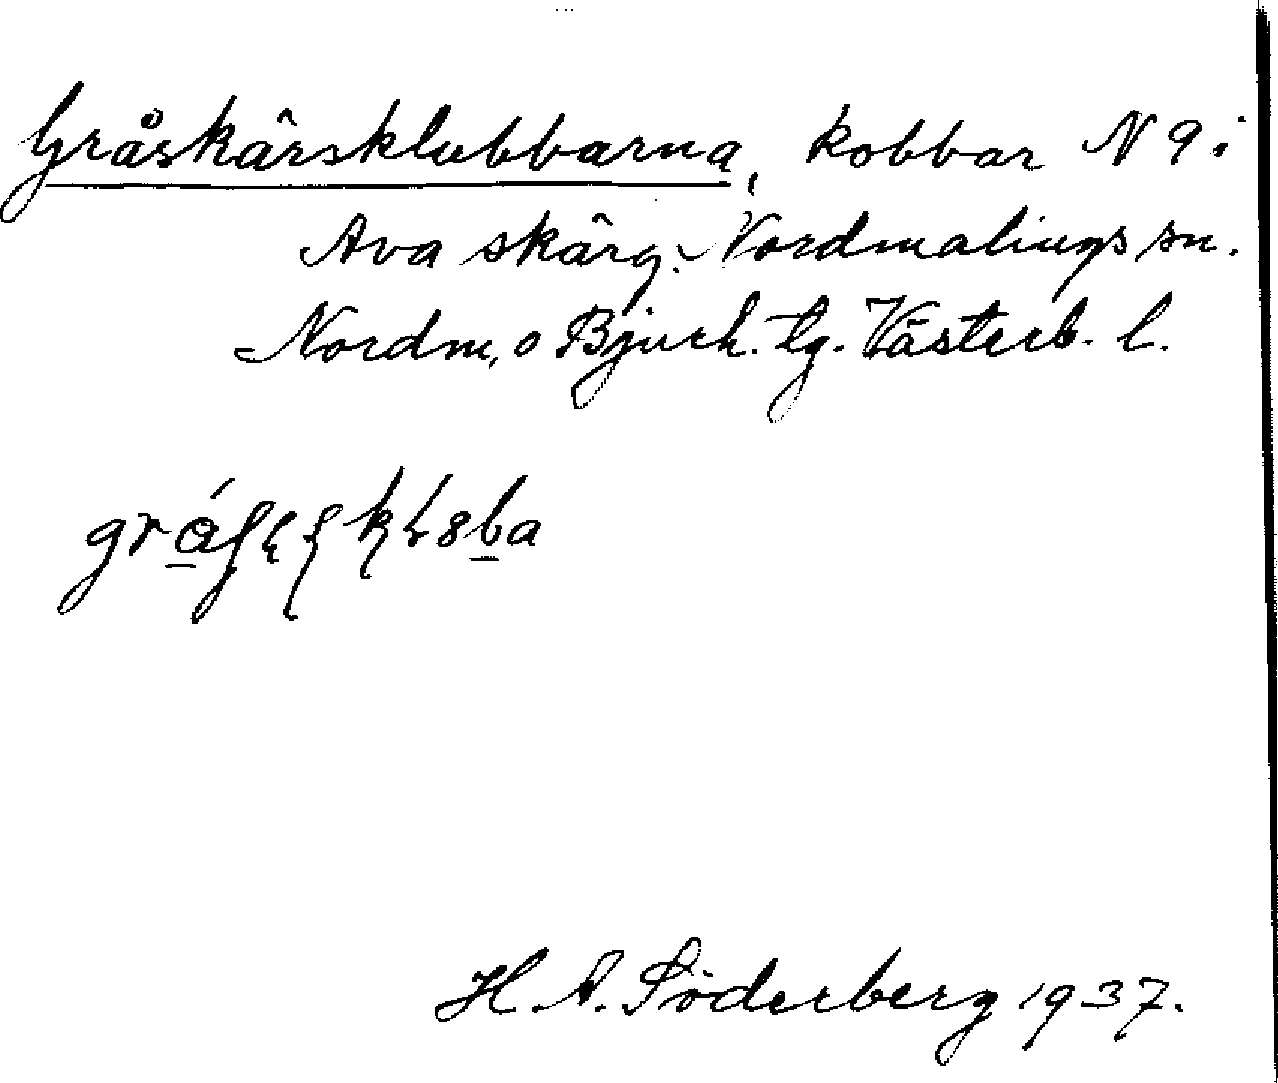 Gråskärsklubbarna, kobbar N 9 i
Ava skärg. Nordmalings sn.
Nordm. o Bjurh. tg. Västerb. l.
H. A. Söderberg 1937.